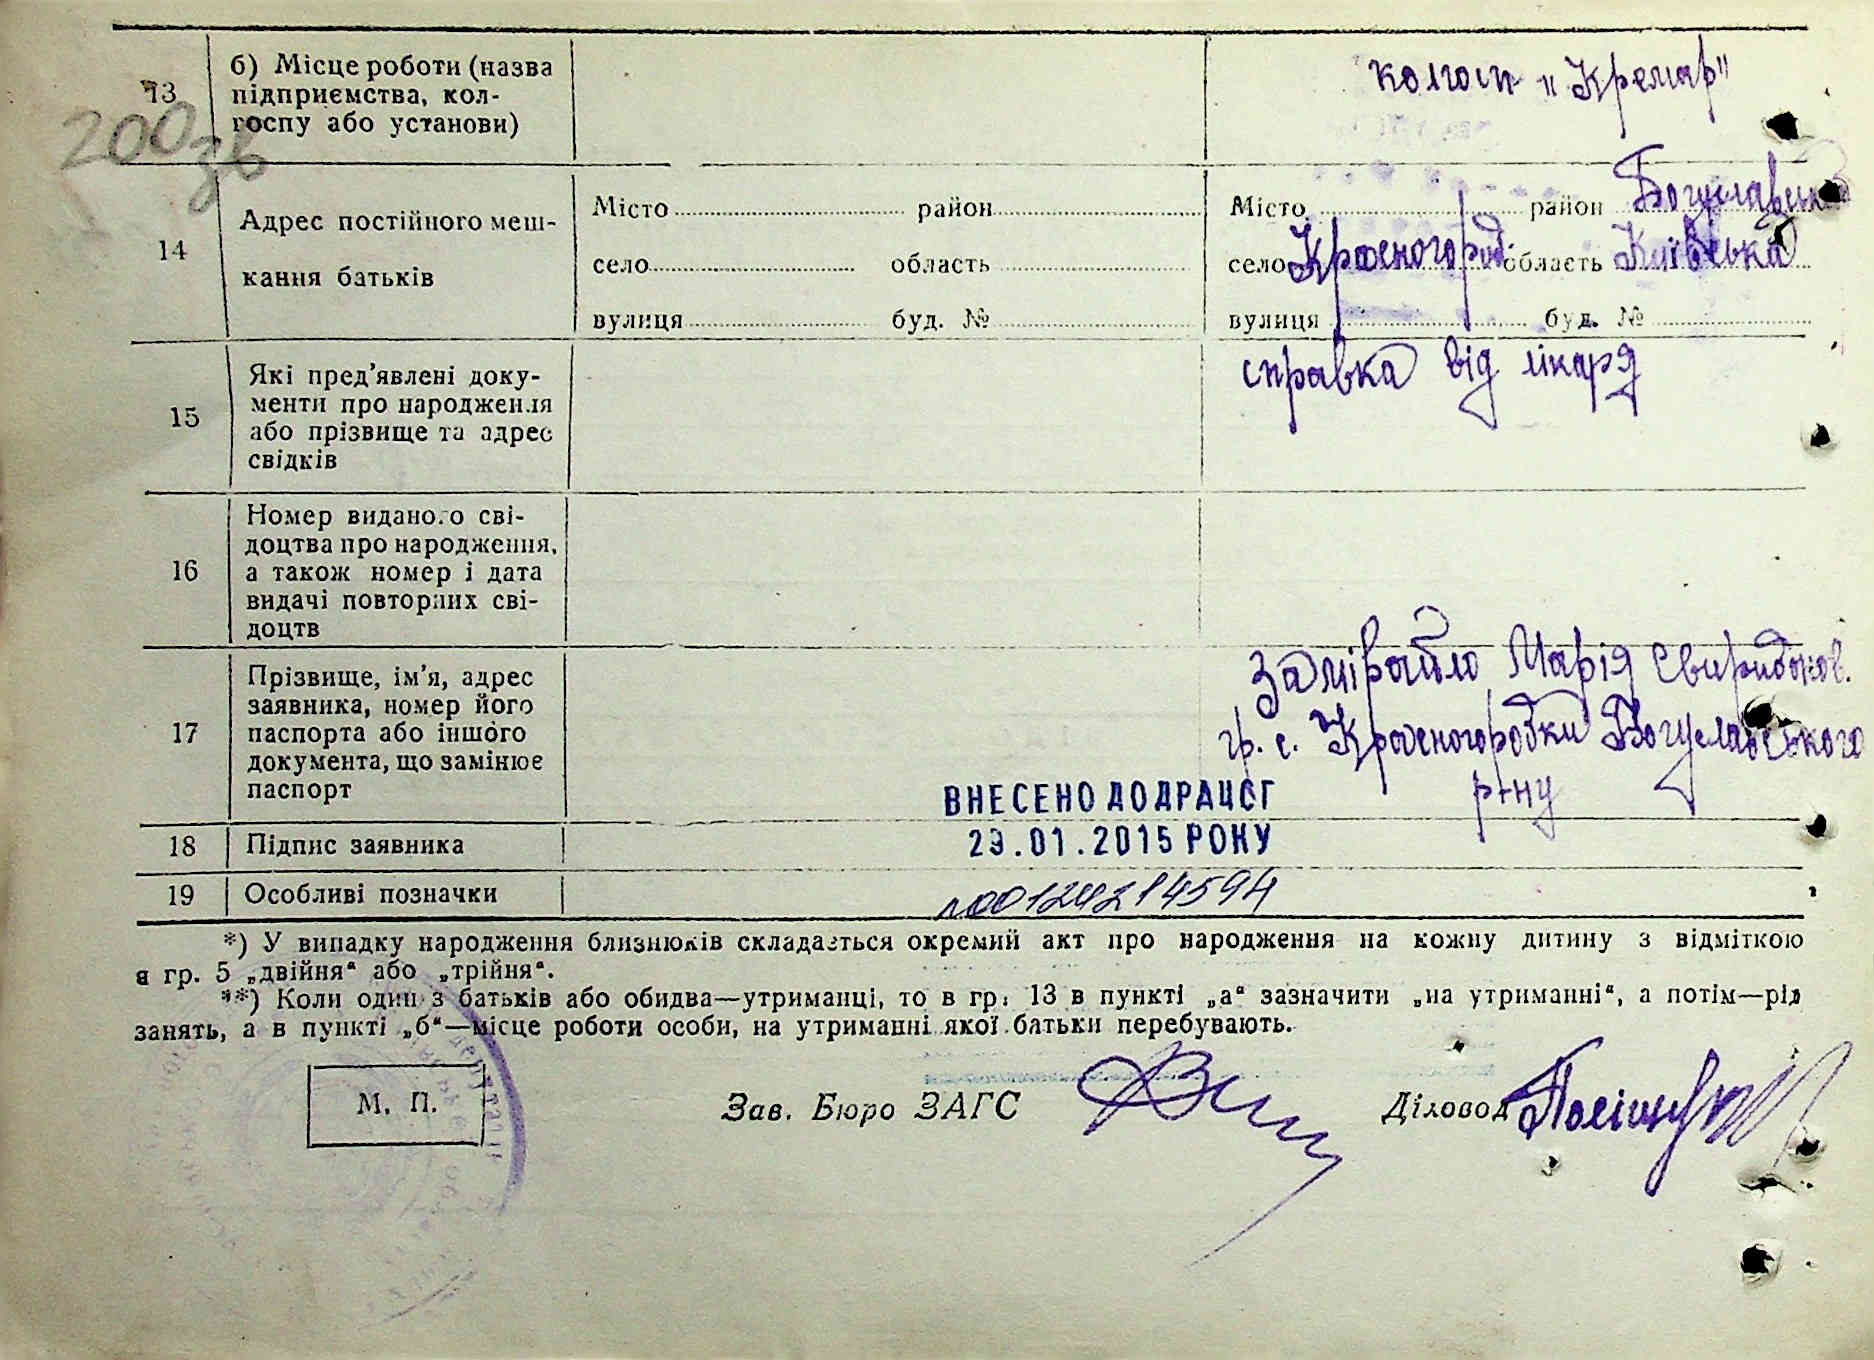 13
б) Місце роботи (назва
підприємства, кол-
госпу або установи)
колгосп „Кремар"
200зв
14
Адрес постійного меш-
кання батьків
Місто район
село область
вулиця буд. №
Місто район Богуславськ
село Красногород. область Київська
вулиця буд. №
15
Які пред'явлені доку-
менти про народження
або прізвище та адрес
свідків
справка від лікаря
16
Номер виданого сві-
доцтва про народження,
а також номер і дата
видачі повторних сві-
доцтв
17
Прізвище, ім'я, адрес
заявника, номер його
паспорта або іншого
документа, що замінює
паспорт
Замірайло Марія Свиридонов.
гр. с. Красногородки Богуславського
р-ну
ВНЕСЕНО ДО ДРАЦСГ
29.01.2015 РОКУ
18
Підпис заявника
19
Особливі позначки
№00124214594
*) У випадку народження близнюків складається окремий акт про народження на кожну дитину з відміткою
в гр. 5 „двійня“ або „трійня“.
**) Коли один з батьків або обидва—утриманці, то в гр. 13 в пункті „а“ зазначити „на утриманні“, а потім—рід
занять, а в пункті „б“—місце роботи особи, на утриманні якої батьки перебувають.
М. П.
Зав. Бюро ЗАГС
Діловод